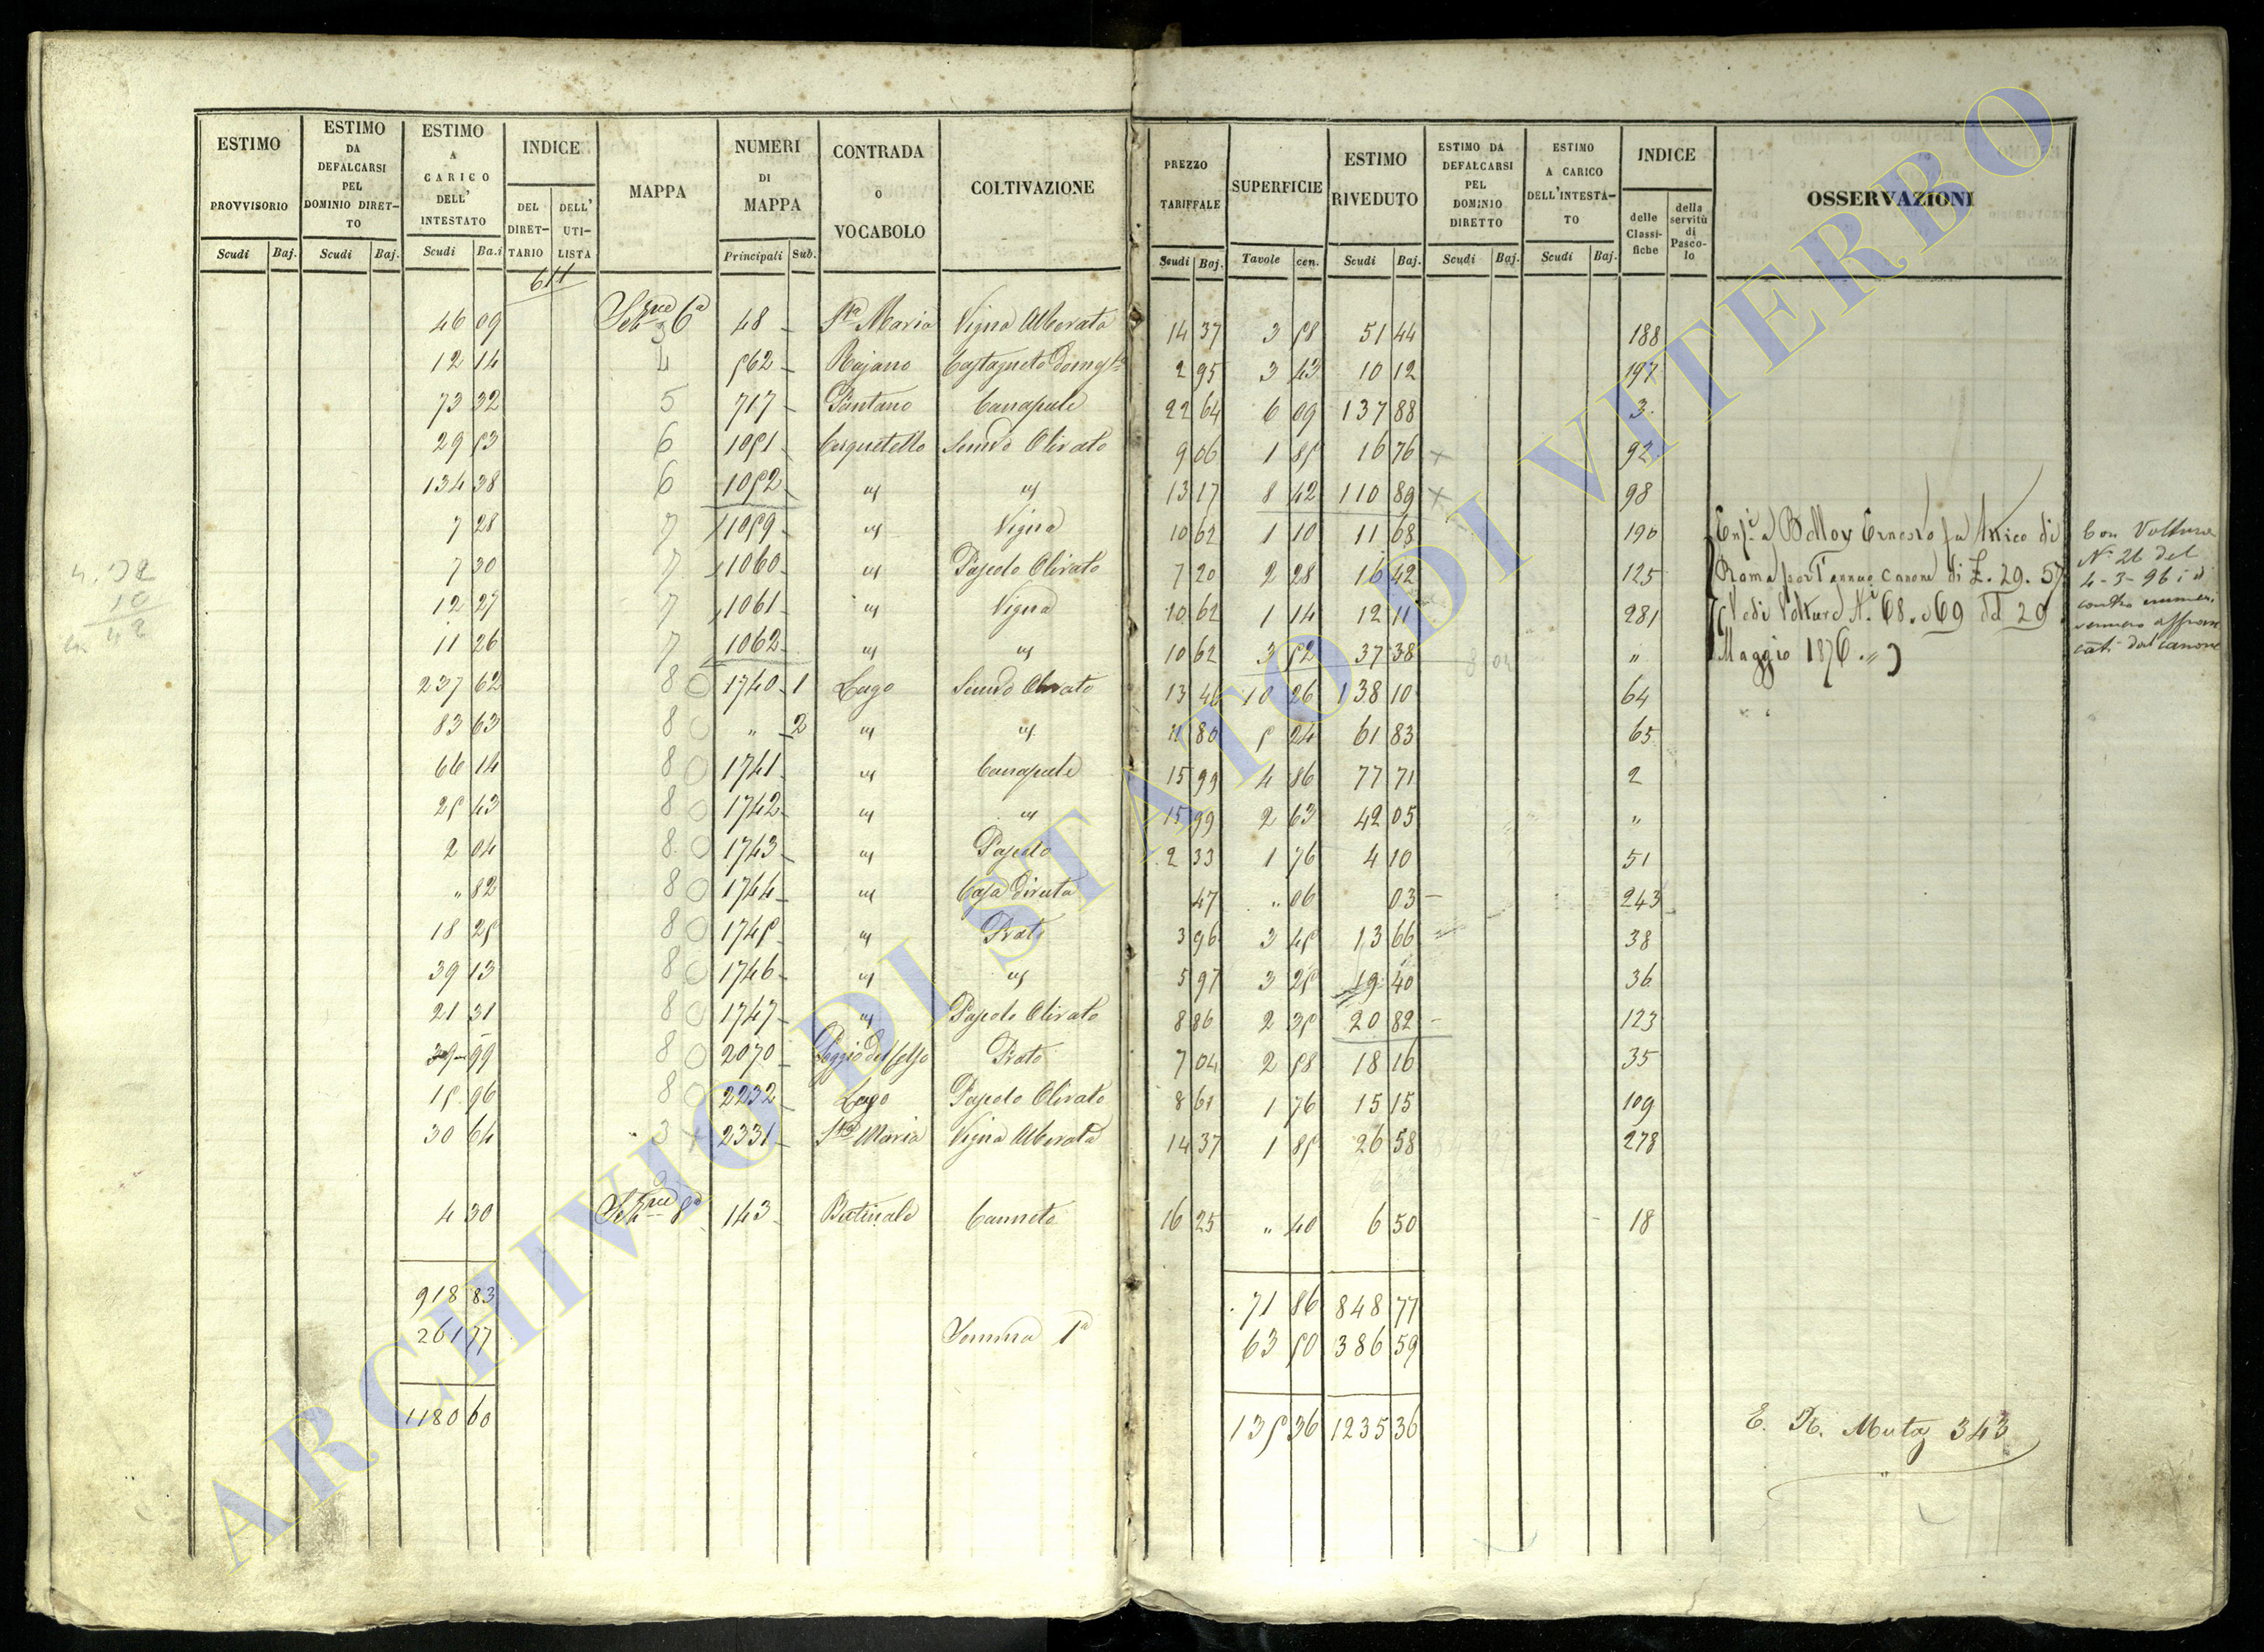 ESTIMO PROVVISORIO
ESTIMO DA DEFALCARSI PEL DOMINIO DIRETTO
ESTIMO A CARICO DELL' INTESTATO
INDICE
DEL DIRETTARIO
DELL' UTILISTA
MAPPA
NUMERI DI MAPPA
CONTRADA O VOCABOLO
COLTIVAZIONE
PREZZO TARIFFALE
SUPERFICIE
ESTIMO RIVEDUTO
ESTIMO DA DEFALCARSI PEL DOMINIO DIRETTO
ESTIMO A CARICO DELL'INTESTATO
INDICE
delle Classifiche
della servitù di Pascolo
OSSERVAZIONI
Scudi Baj. Scudi Baj. Scudi Ba.i Principali Sub. Scudi Baj. Tavole cen. Scudi Baj. Scudi Baj. Scudi Baj.
611
46 09 6a 3 48 - Sta Maria Vigna Alberata 14 37 3 58 51 44 188
12 14 4 562 - Rajano Castagneto 2 95 3 43 10 12 197
73 32 5 717 - Pantano Canapule 22 64 6 09 137 88 3
29 53 6 1051 - Cerquetello Semvo Olivato 9 06 1 85 16 76 + 92
134 38 6 1052 - " " 13 17 8 42 110 89 + 98
7 28 7 1059 - " Vigna 10 62 1 10 11 68 190
7 30 7 1060 - " Pascolo Olivato 7 20 2 28 16 42 125
12 27 7 1061 - " Vigna 10 62 1 14 12 11 281
11 26 7 1062 - " " 10 62 3 52 37 38 "
237 62 8 1740 1 Lago Semvo Olivato 13 46 10 26 138 10 64
83 63 8 " 2 " " 11 80 5 24 61 83 65
66 14 8 1741 - " Canapule 15 99 4 86 77 71 2
25 43 8 1742 - " " 15 99 2 63 42 05 "
2 04 8 1743 - " Pascolo 2 33 1 76 4 10 51
" 82 8 1744 - " Casa diruta 47 " 06 03 - 243
18 25 8 1745 - " Prato 3 96 3 45 13 66 38
39 13 8 1746 - " " 5 97 3 25 19 40 36
21 31 8 1747 - " Pascolo Olivato 8 86 2 35 20 82 - 123
39 99 8 2070 - Poggio del Celso Prato 7 04 2 58 18 16 35
15 96 8 2232 - Lago Pascolo Olivato 8 61 1 76 15 15 109
30 64 3 2331 - Sta Maria Vigna Alberata 14 37 1 85 26 58 278
4 30 8a 143 - Canneto 16 25 " 40 6 50 18
918 83 71 86 848 77
261 77 Somma 1a 63 50 386 59
1180 60 135 36 1235 36
4.32
10
4.42
Enfi. a Belloy Ernesto fu Enrico di
Roma per l'annuo canone di £. 29. 57
(Vedi Volture N.i 68. e 69 del 29
Maggio 1876. ")
Con Voltura
N° 26 del
4-3-96 i di
contro numeri
vennero affran
cati dal canone
E. R. Muta 343
ARCHIVIO DI STATO DI VITERBO